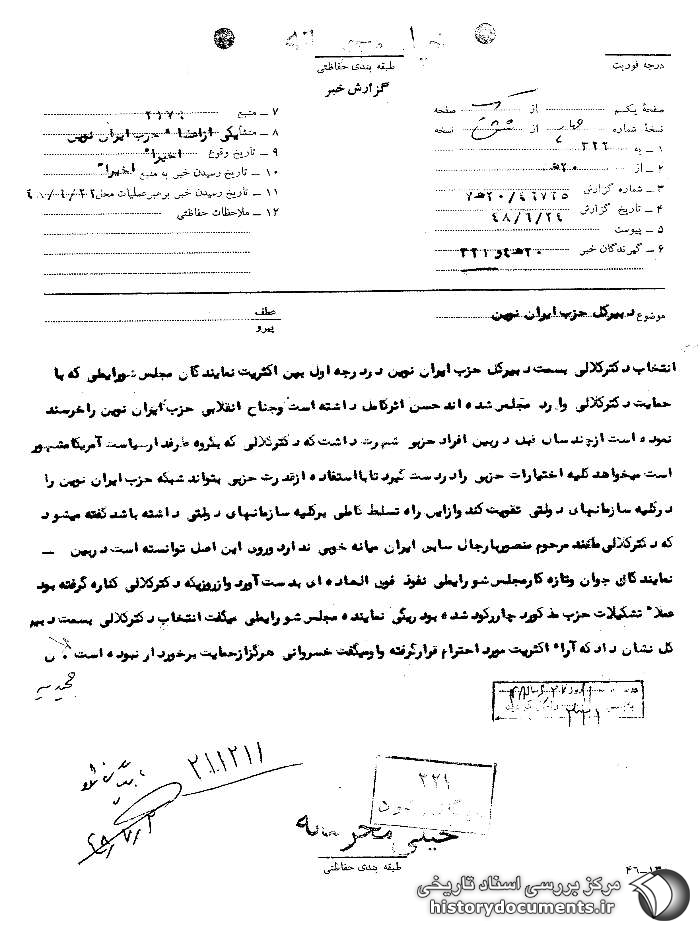 طبقه بندی حفاظتی
درجه فوریت
گزارش خبر
صفحهٔ یکم از یک صفحه
نسخهٔ شماره چهار از شش نسخه
۱ ـ به ۳۲۲
۲ ـ از ۲۰ه
۳ ـ شماره گزارش ۲۰/۴۶۷۲۵ه۷
۴ ـ تاریخ گزارش ۴۸/۶/۲۴
۵ ـ پیوست
۶ ـ گیرندگان خبر ۲۰ه۴ و ۳۲۱
۷ ـ منبع ۲۱۷۹
۸ ـ منشأ یکی از اعضاء حزب ایران نوین
۹ ـ تاریخ وقوع اخیرا"
۱۰ ـ تاریخ رسیدن خبر به منبع اخیرا"
۱۱ ـ تاریخ رسیدن خبر برهبر عملیات محل
۱۲ ـ ملاحظات حفاظتی
موضوع دبیرکل حزب ایران نوین
عطف
پیرو
انتخاب دکترکلالی بسمت دبیرکل حزب ایران نوین در درجه اول بین اکثریت نمایندگان مجلس شورایملی که با
حمایت دکترکلالی وارد مجلس شده اند حسن اثرکامل داشته است وجناح انقلابی حزب ایران نوین راخرسند
نموده است ازچندسال قبل دربین افراد حزبی شهرت داشت که دکترکلالی که بگروه طرفدارسیاست آمریکامشهور
است میخواهد کلیه اختیارات حزبی رادردست گیرد تابااستفاده ازقدرت حزبی بتواند شبکه حزب ایران نوین را
درکلیه سازمانهای دولتی تقویت کند وازاین راه تسلط کاملی برکلیه سازمانهای دولتی داشته باشد گفته میشود
که دکترکلالی مانند مرحوم منصوربارجال سابق ایران میانه خوبی ندارد وروی این اصل توانسته است دربین ـ
نمایندگان جوان وتازه کارمجلس شورایملی نفوذ فوق العاده ای بدست آورد وازروزیکه دکترکلالی کناره گرفته بود
عملا" تشکیلات حزب مذکورد چاررکود شده بود ریگی نماینده مجلس شورایملی میگفت انتخاب دکترکلالی بسمت دبیر
کل نشان داد که آراء اکثریت مورد احترام قرارگرفته واومیگفت خسروانی هرگزازحمایت برخوردار نبوده است .
۲۱۱۲۱۱
۴۸/۷/۲
۲۲۱
خیلی محرمانه
طبقه بندی حفاظتی
۴۶ـ۱۳
مرکز بررسی اسناد تاریخی
historydocuments.ir